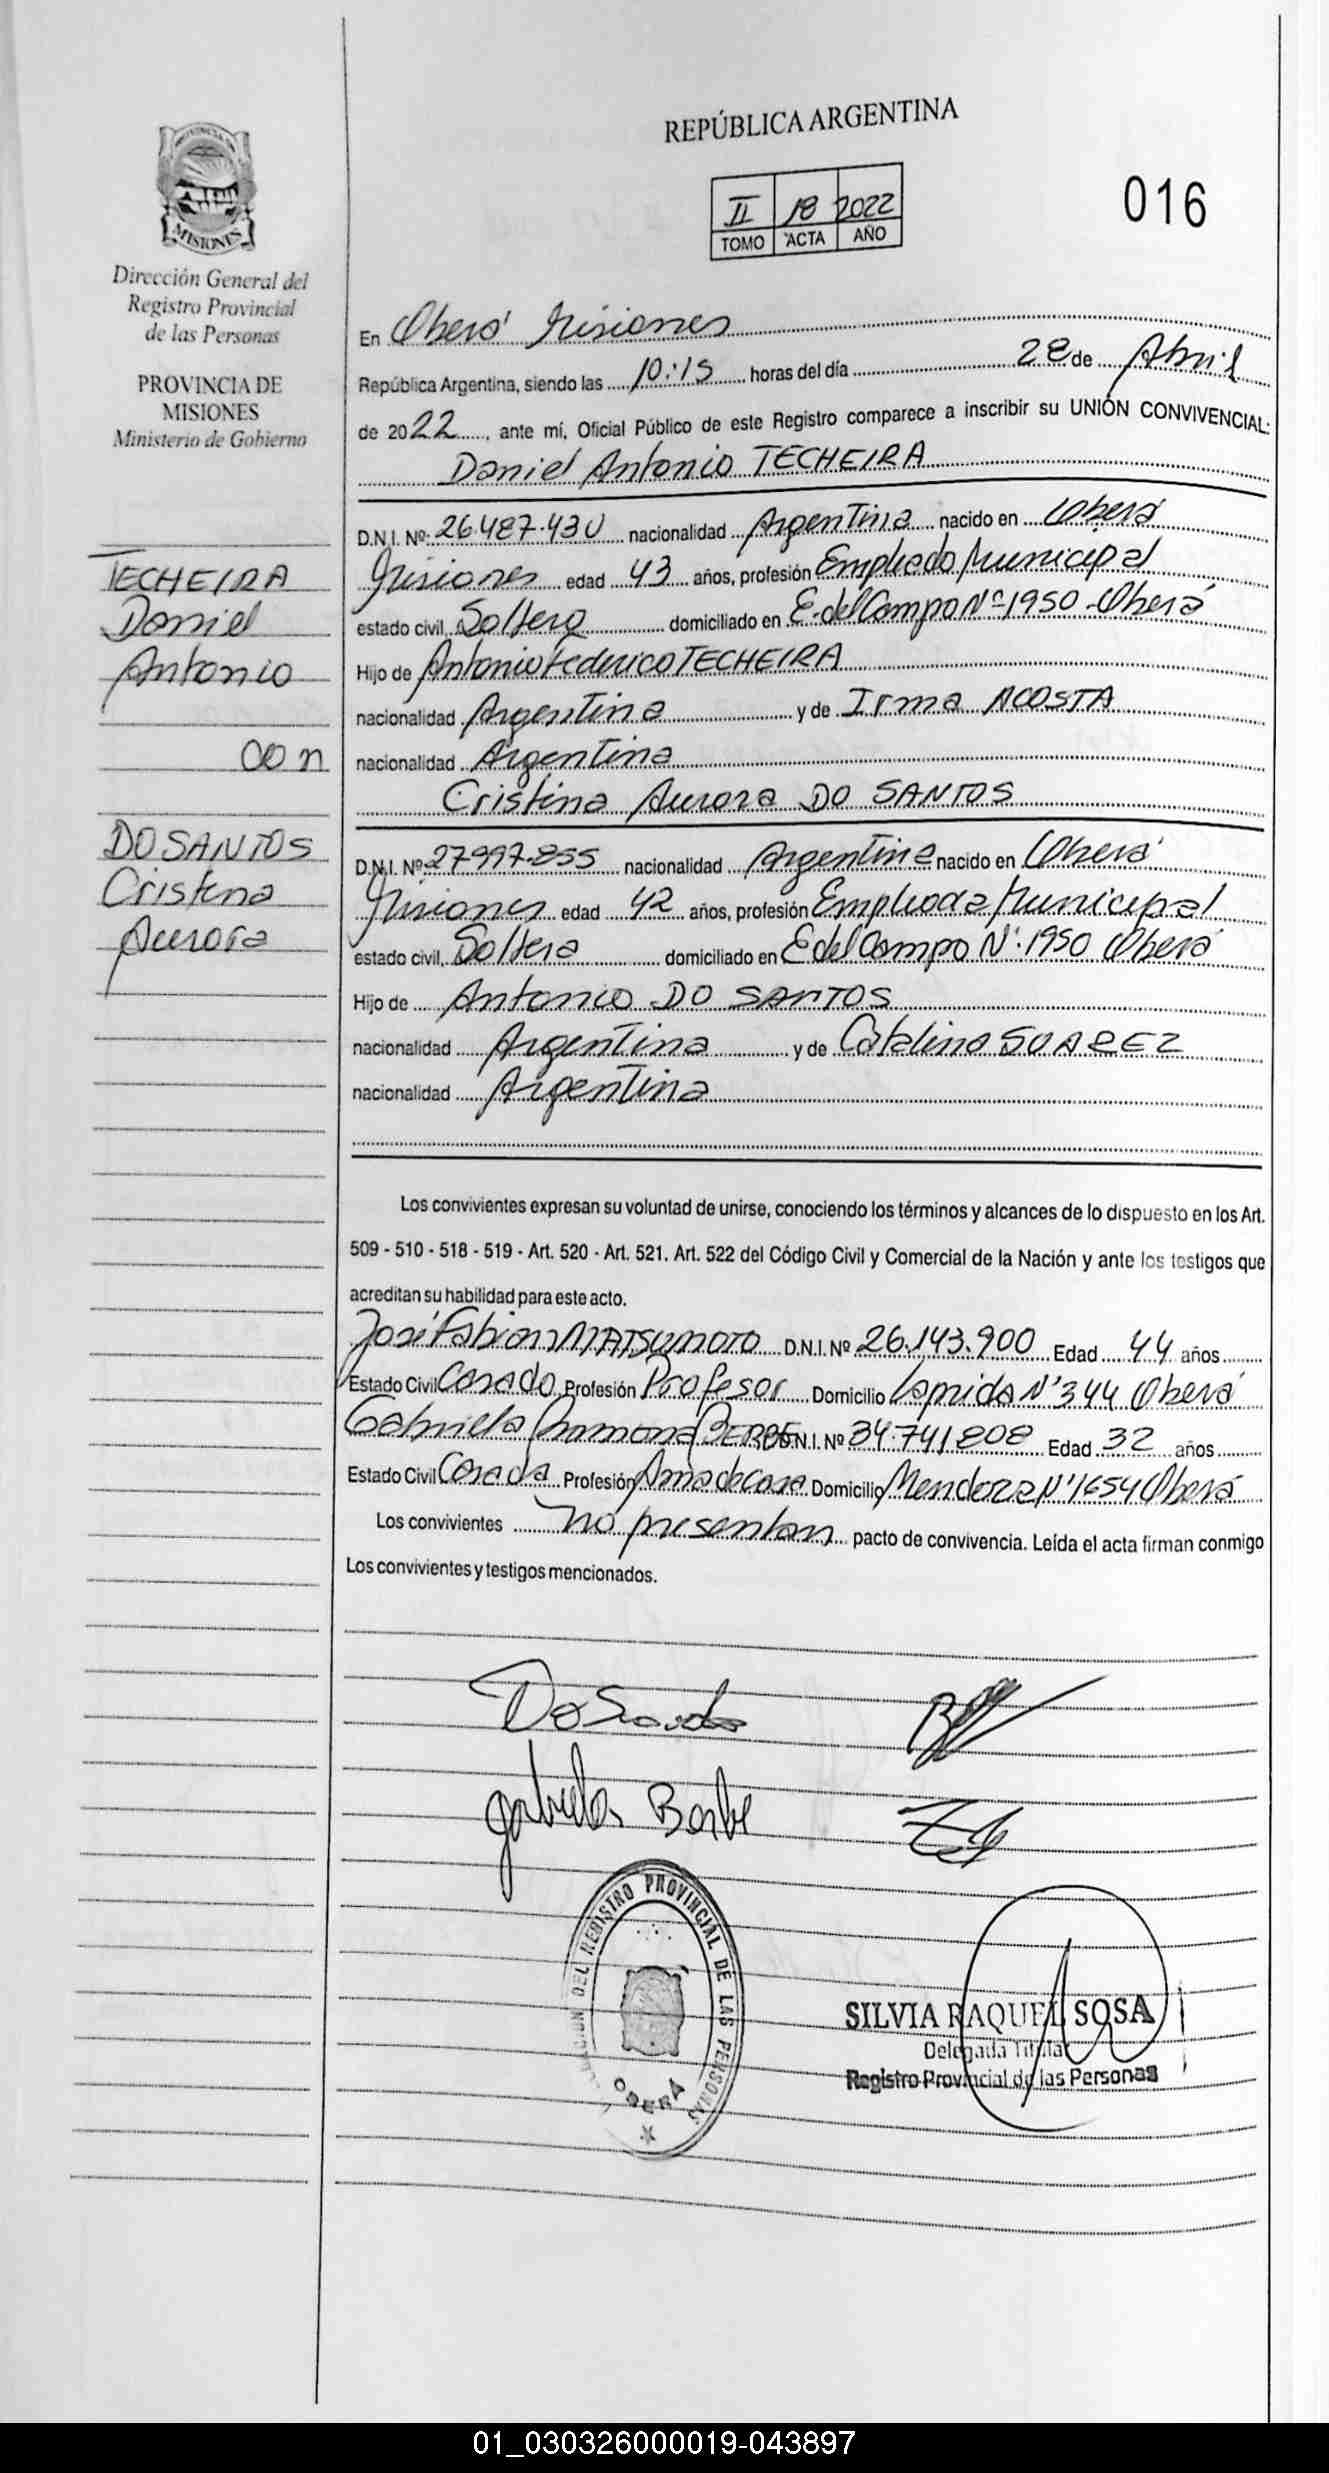 REPÚBLICA ARGENTINA
II 18 2022
TOMO ACTA AÑO
016
PROVINCIA DE
MISIONES
Dirección General del
Registro Provincial
de las Personas
PROVINCIA DE
MISIONES
Ministerio de Gobierno
TECHEIRA
Daniel
Antonio
con
DO SANTOS
Cristina
Aurora
En Oberá Misiones
República Argentina, siendo las 10:15 horas del día 28 de Abril
de 2022, ante mí, Oficial Público de este Registro comparece a inscribir su UNIÓN CONVIVENCIAL:
Daniel Antonio TECHEIRA
D.N.I. Nº: 26.487.430 nacionalidad Argentina nacido en Oberá
Misiones edad 43 años, profesión Empleado Municipal
estado civil Soltero domiciliado en E. del Campo Nº 1950 - Oberá
Hijo de Antonio Federico TECHEIRA
nacionalidad Argentina y de Irma ACOSTA
nacionalidad Argentina
Cristina Aurora DO SANTOS
D.N.I. Nº 27.997.855 nacionalidad Argentina nacido en Oberá
Misiones edad 42 años, profesión Empleada Municipal
estado civil Soltera domiciliado en E del Campo Nº 1950 Oberá
Hijo de Antonio DO SANTOS
nacionalidad Argentina y de Catalina SUAREZ
nacionalidad Argentina
Los convivientes expresan su voluntad de unirse, conociendo los términos y alcances de lo dispuesto en los Art.
509 - 510 - 518 - 519 - Art. 520 - Art. 521. Art. 522 del Código Civil y Comercial de la Nación y ante los testigos que
acreditan su habilidad para este acto.
José Fabian MATSUMOTO D.N.I. Nº 26.143.900 Edad 44 años
Estado Civil Casado Profesión Profesor Domicilio Laprida Nº 344 Oberá
Gabriela Ramona BERBE D.N.I. Nº 34.741808 Edad 32 años
Estado Civil Casada Profesión Ama de Casa Domicilio Mendoza Nº 1654 Oberá
Los convivientes no presentan pacto de convivencia. Leída el acta firman conmigo
Los convivientes y testigos mencionados.
Do Santos
gabriela Berbe
DELEGACION DEL REGISTRO PROVINCIAL DE LAS PERSONAS
OBERÁ
SILVIA RAQUEL SOSA
Delegada Titular
Registro Provincial de las Personas
01_030326000019-043897